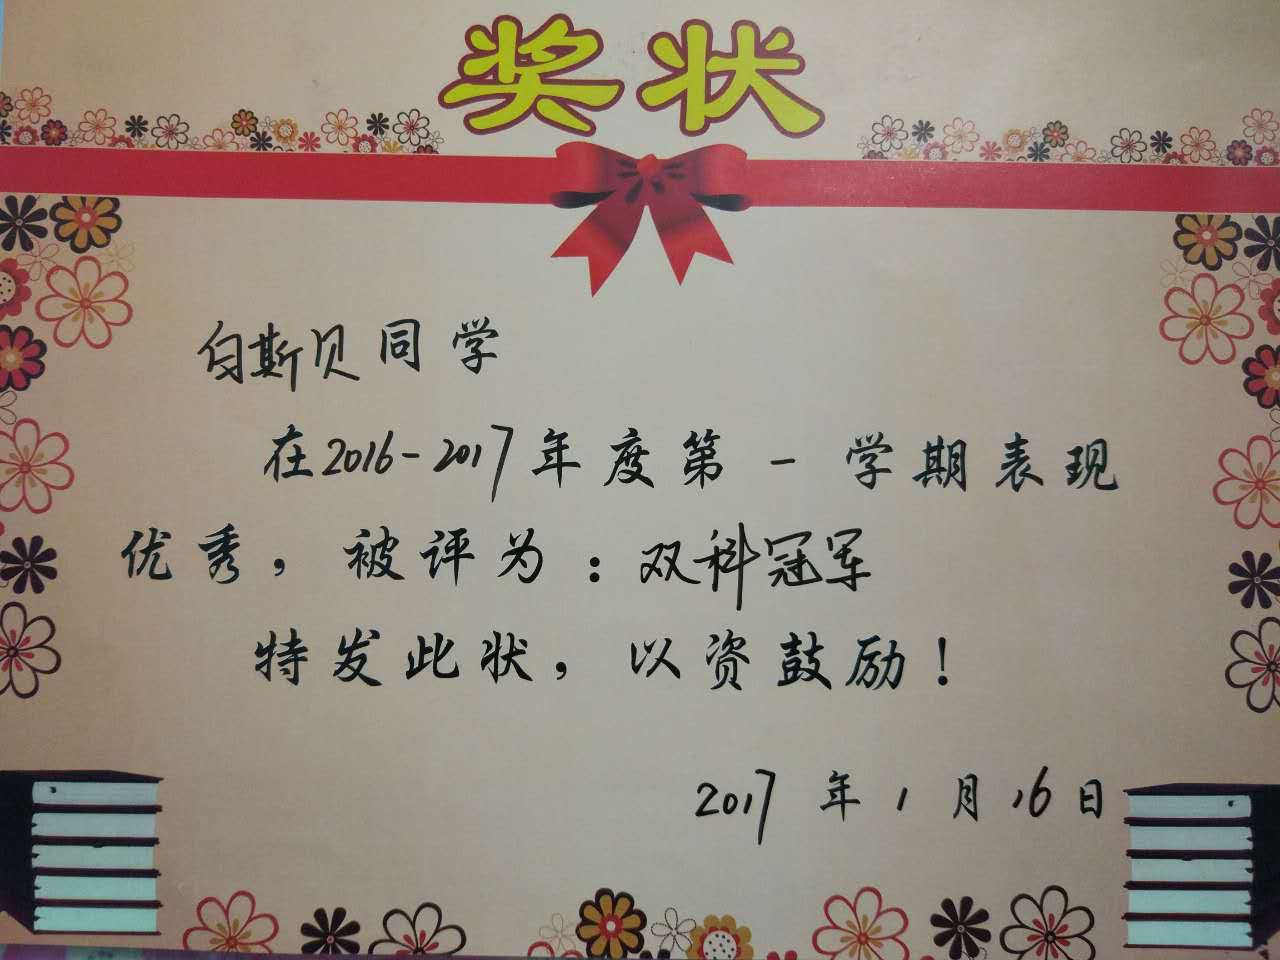 奖状
白斯贝同学
在2016-2017年度第一学期表现
优秀，被评为：双科冠军
特发此状，以资鼓励！
2017年1月16日